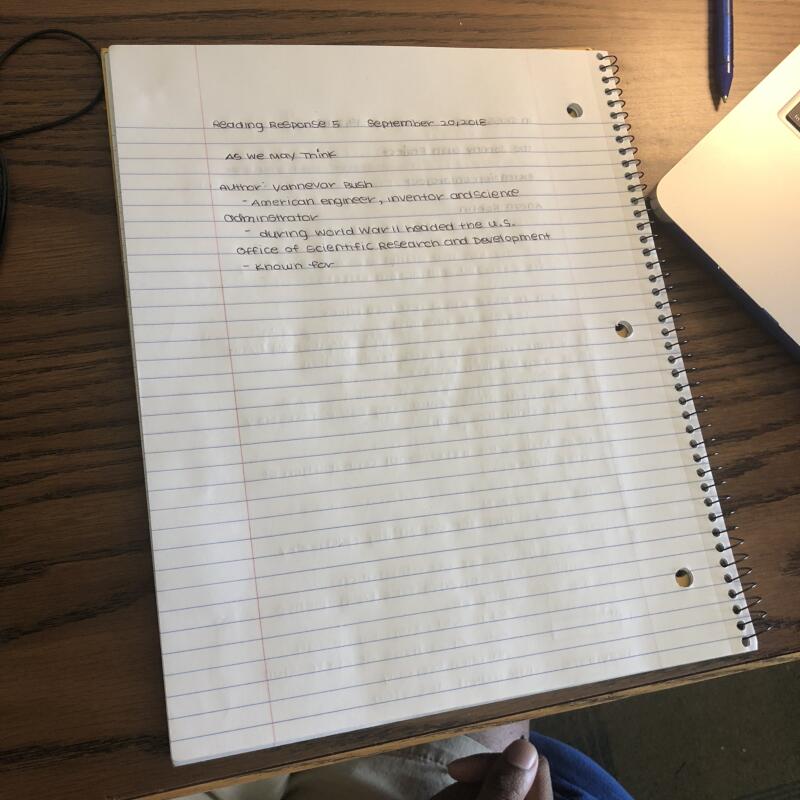 Reading Response 5 September 20, 2018
As We May Think
Author: Vannevar Bush
- American engineer, inventor and science
adminstrator
- during World War II headed the U.S.
Office of Scientific Research and Development
- Known for